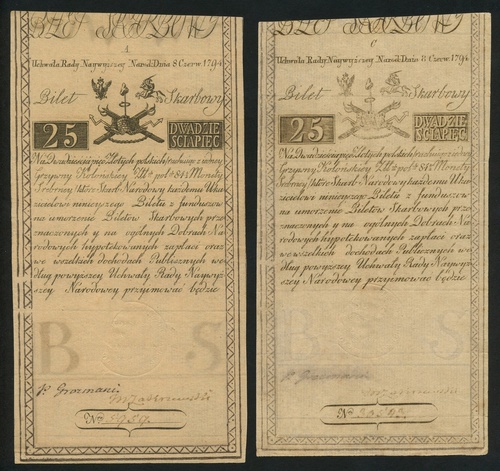 BILET SKARBOWY
A
Uchwała Rady Naywyższey Narod: Dnia 8 Czerw. 1794
Bilet Skarbowy
25 DWADZIE
ŚCIAPIĘĆ
Na Dwadzieścia pięć Złotych polskich, rachuiąc z iedney
Grzywny Kolońskiey Złł: pols: 84½ Monety
Srebrney, które Skarb Narodowy każdemu Oka-
zicielowi ninieyszego Biletu z funduszow
na umorzenie Biletów Skarbowych prze-
znaczonych y na ogólnych Dobrach Na-
rodowych hypotekowanych zapłaci oraz
we wszelkich dochodach Publicznych we-
dług powyższey Uchwały Rady Naywyż-
szey Narodowey przyjmować będzie
B S
P. Grozmani
MZakrzewski
BILET SKARBOWY
C
Uchwała Rady Naywyższey Narod: Dnia 8 Czerw. 1794
Bilet Skarbowy
25 DWADZIE
ŚCIAPIĘĆ
Na Dwadzieścia pięć Złotych polskich, rachuiąc z iedney
Grzywny Kolońskiey Złł: pols: 84½ Monety
Srebrney, które Skarb Narodowy każdemu Oka-
zicielowi ninieyszego Biletu z funduszow
na umorzenie Biletów Skarbowych prze-
znaczonych y na ogólnych Dobrach Na-
rodowych hypotekowanych zapłaci oraz
we wszelkich dochodach Publicznych we-
dług powyższey Uchwały Rady Naywyż-
szey Narodowey przyjmować będzie
B S
P. Grozmani
MZakrzewski